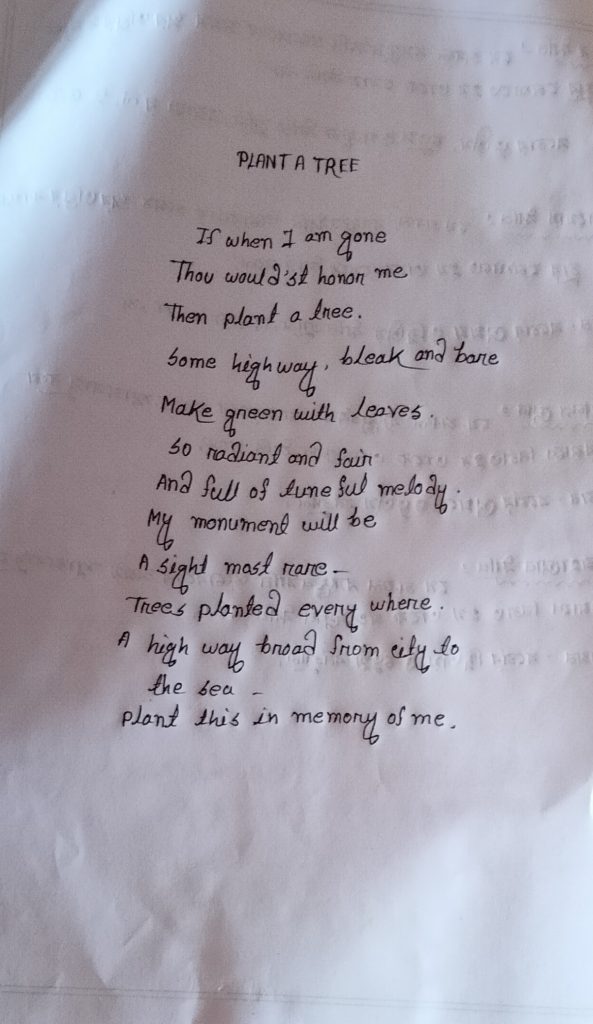 PLANT A TREE
If when I am gone
Thou would'st honor me
Then plant a tree.
Some high way, bleak and bare
Make green with leaves.
So radiant and fair
And full of tune ful melody.
My monument will be
A sight most rare -
Trees planted every where.
A high way broad from city to
the sea -
plant this in memory of me.